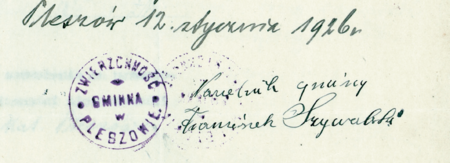 Pleszów 12 stycznia 1926 r.
ZWIERZCHNOŚĆ
GMINNA
W
PLESZOWIE
Naczelnik gminy